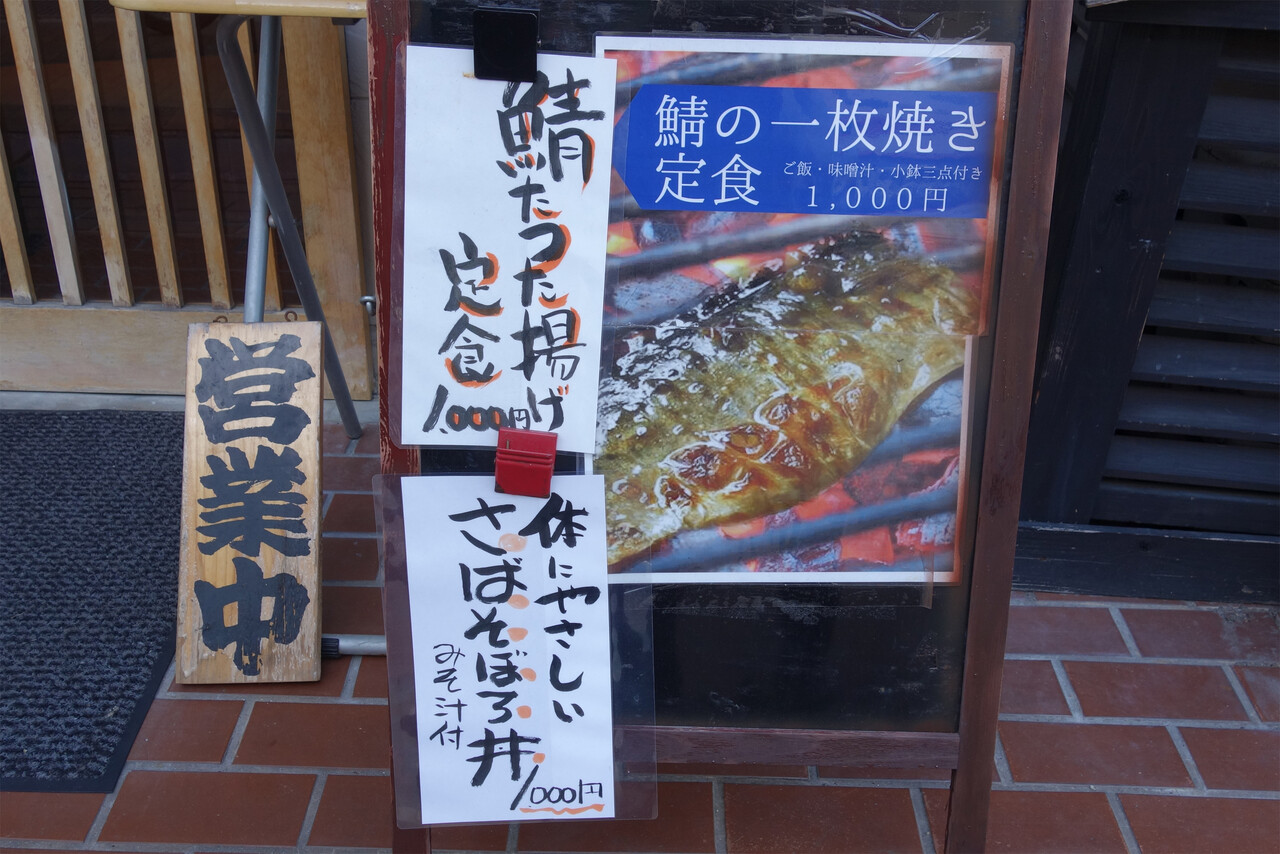 鯖たつた揚げ
定食
1,000円
鯖の一枚焼き
定食
ご飯・味噌汁・小鉢三点付き
1,000円
営業中
体にやさしい
さばそぼろ丼
みそ汁付
1,000円